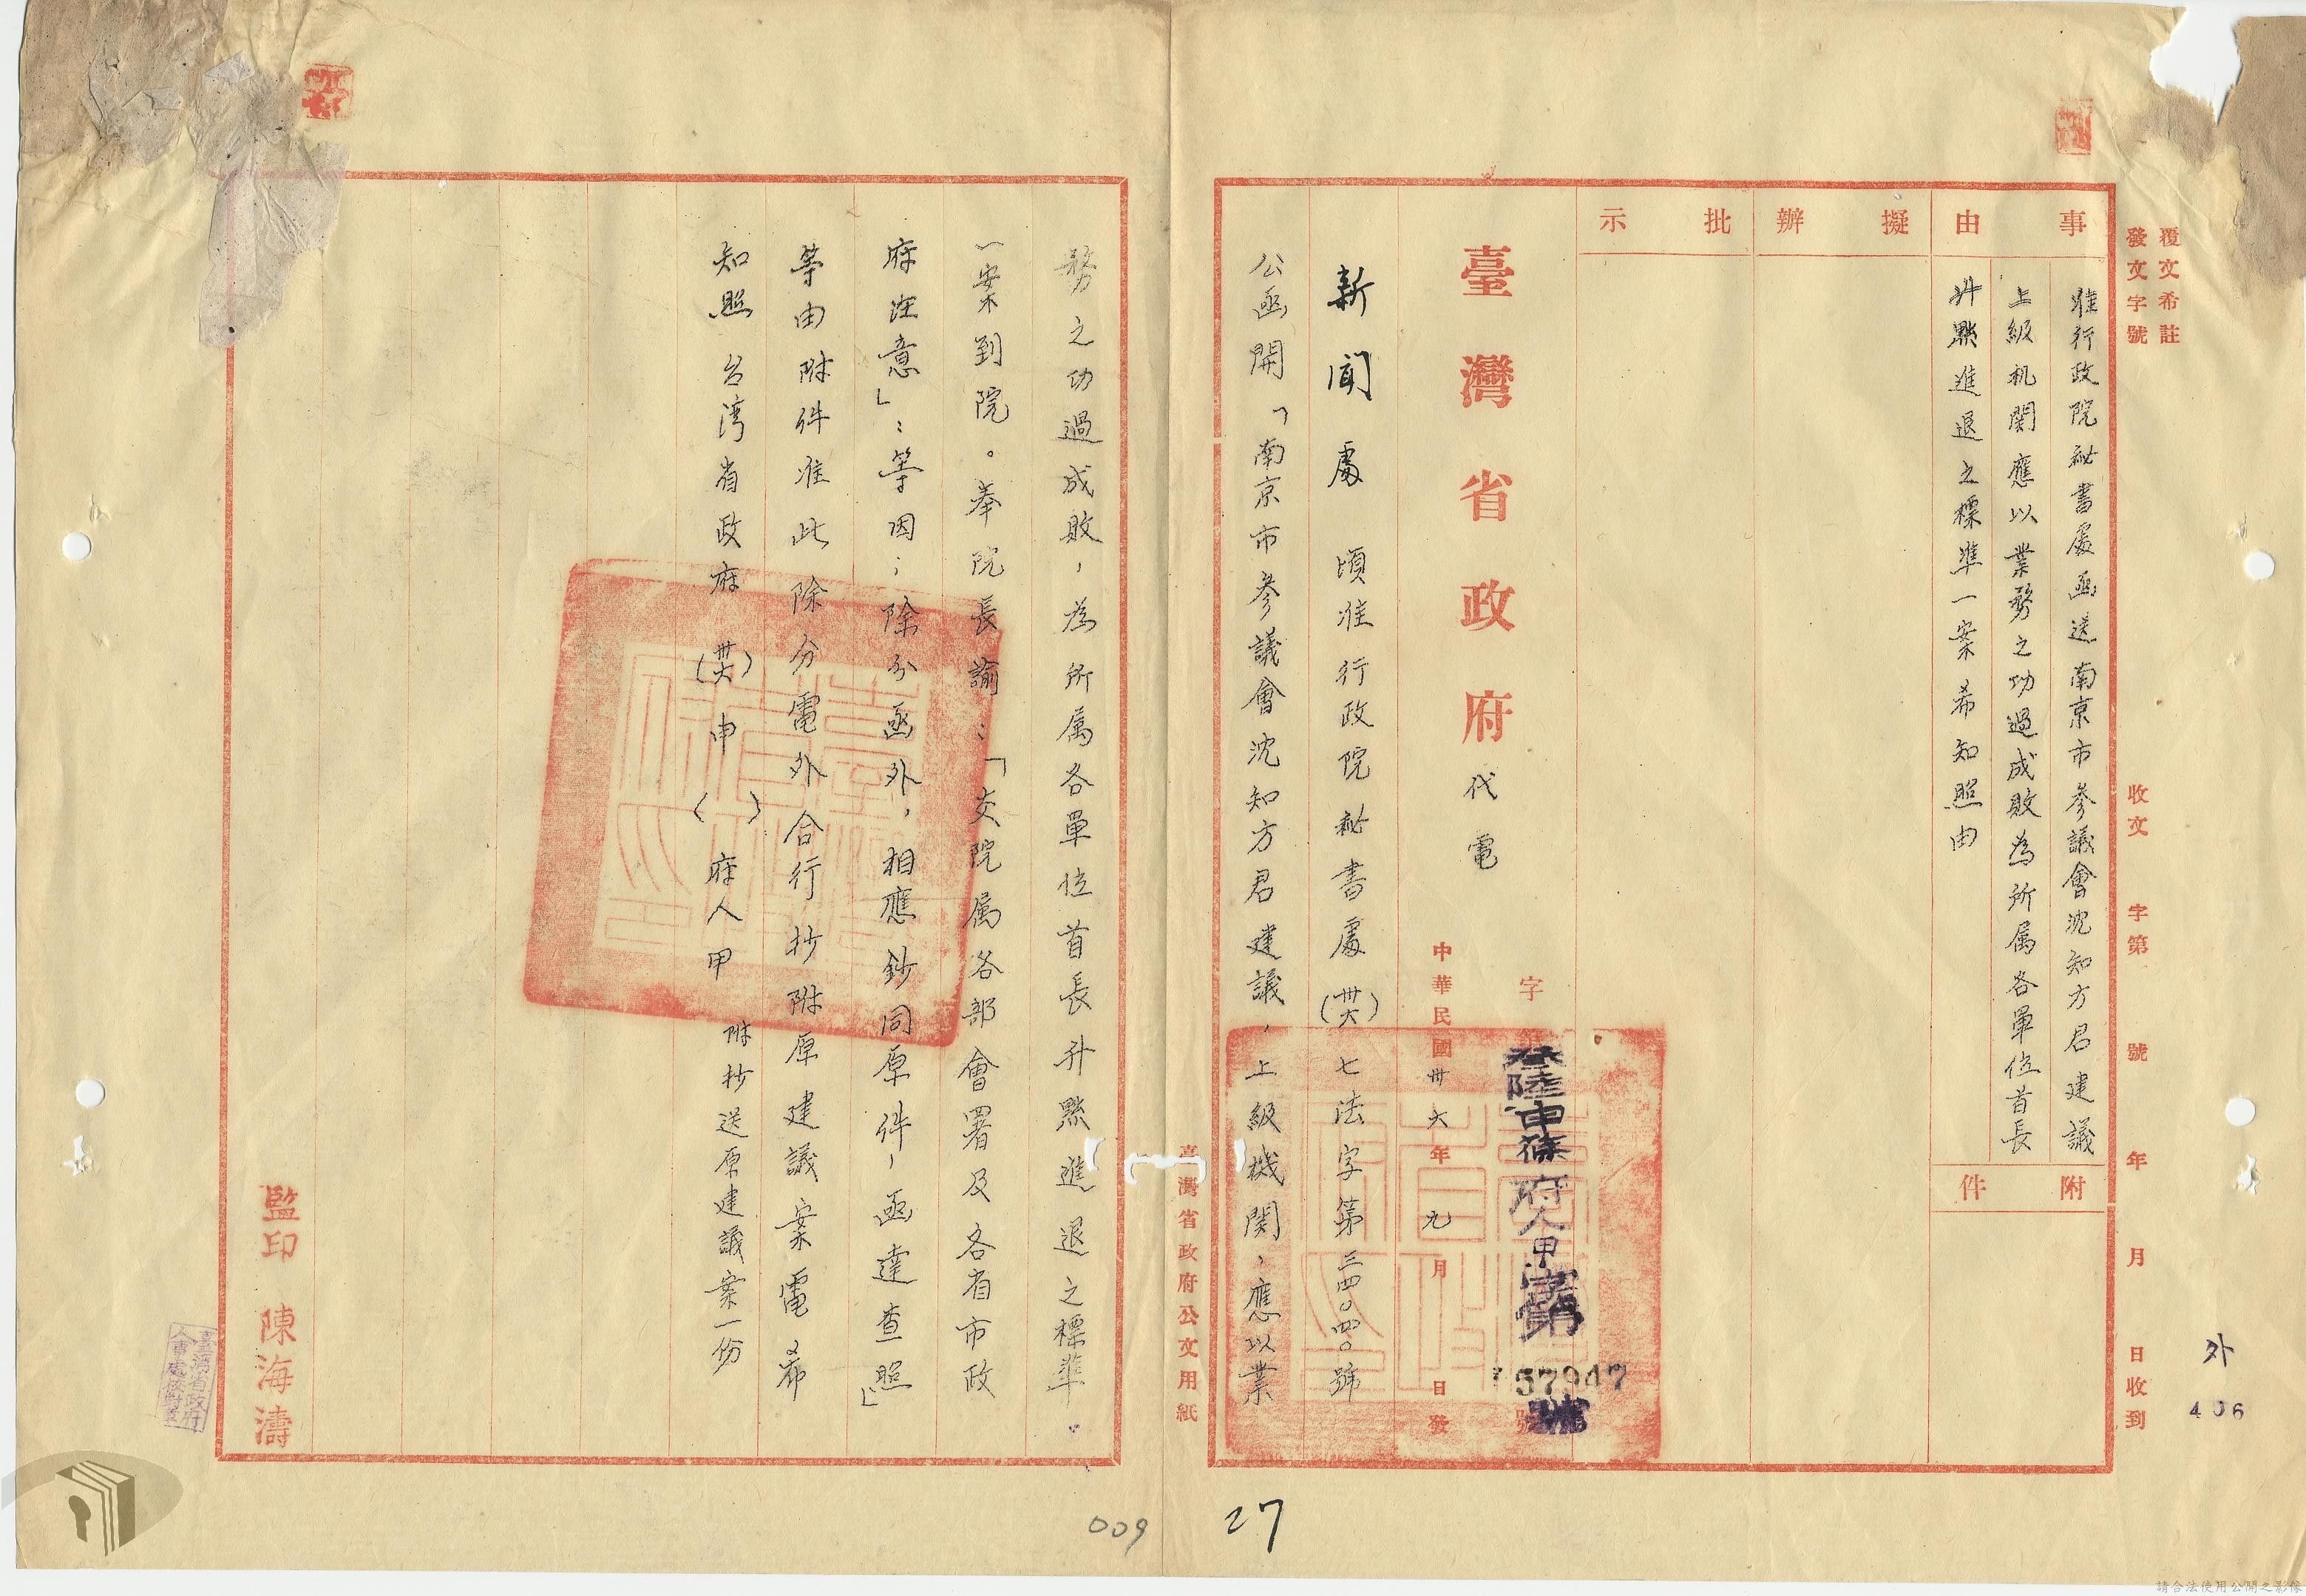 覆文希註
發文字號
收文 字第 號 年 月 日收到
外
406
事由
准行政院祕書處函送南京市參議會沈知方君建議
上級机関應以業務之功過成敗為所属各單位首長
升黜進退之標準一案希知照由
附件
擬辦
批示
臺灣省政府代電
字第 號
叁陸申篠府人甲字第
57947
號
中華民國卅六年九月 日發
新聞處 頃准行政院祕書處(卅六)七法字第三四〇四〇號
公函開「南京市參議會沈知方君建議，上級機関，應以業
臺灣省政府公文用紙
務之功過成敗，為所属各單位首長升黜進退之標準。
一案到院。奉院長諭：「交院属各部會署及各省市政
府注意」：等因；除分函外，相應鈔同原件，函達查照」
等由附件准此除分電外合行抄附原建議案電希
知照 台湾省政府 (卅六)申( )府人甲 附抄送原建議案一份
監印 陳海濤
臺灣省政府
人事處校對章
27
009
請合法使用公開之影像